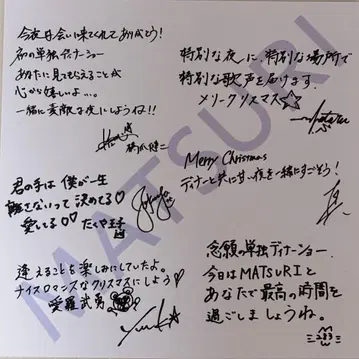 今夜は会いに来てくれてありがとう!
初の単独ディナーショー
あなたに見てもらえることが
心から嬉しいよ...。
一緒に素敵な夜にしようね!!
橋爪健二
特別な夜に、特別な場所で
特別な歌声を届けます。
メリークリスマス☆☆
君の手は僕が一生
離さないって決めてる♡
愛してる♡♡ たくや王子
Merry Christmas
ディナーと共に甘い夜を一緒にすごそう!
逢えることを楽しみにしていたよ。
ナイスロマンスなクリスマスにしよう♡
愛羅武勇
念願の単独ディナーショー。
今日はMATSURIと
あなたで最高の時間を
過ごしましょうね。
MATSURI